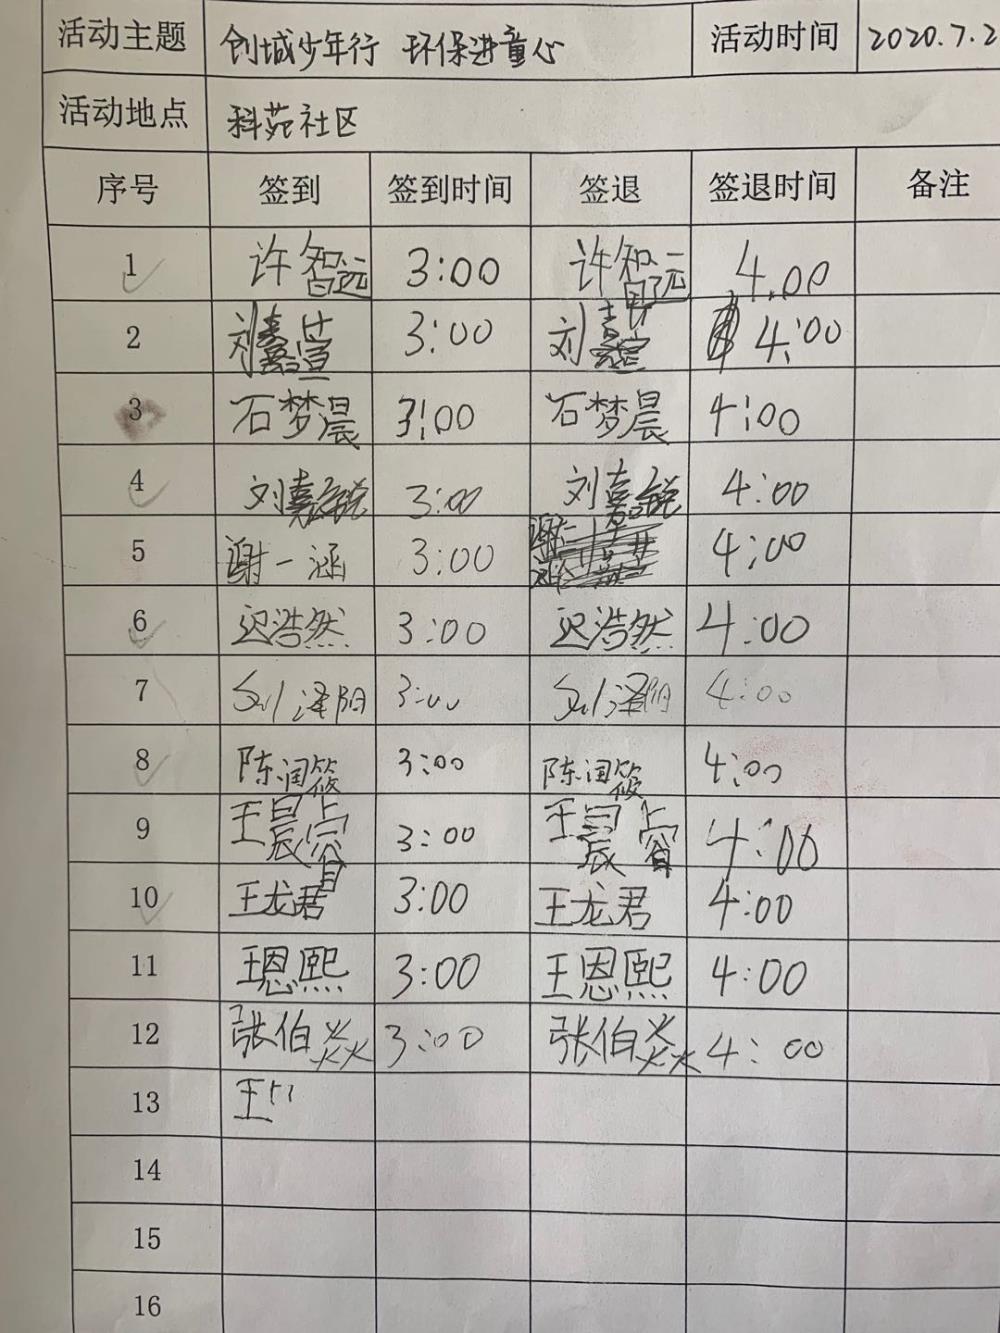 活动主题 创城少年行 环保进童心 活动时间 2020.7.2
活动地点 科苑社区
序号 签到 签到时间 签退 签退时间 备注
1 许智远 3:00 许智远 4.00
2 刘嘉萱 3:00 刘嘉萱 4:00
3 石梦晨 3:00 石梦晨 4:00
4 刘嘉锐 3:00 刘嘉锐 4:00
5 谢一涵 3:00 谢一涵 4:00
6 迟浩然 3:00 迟浩然 4:00
7 刘泽阳 3:00 刘泽阳 4:00
8 陈润筱 3:00 陈润筱 4:00
9 王晨睿 3:00 王晨睿 4:00
10 王龙君 3:00 王龙君 4:00
11 王恩熙 3:00 王恩熙 4:00
12 张伯焱 3:00 张伯焱 4:00
13 王
14
15
16